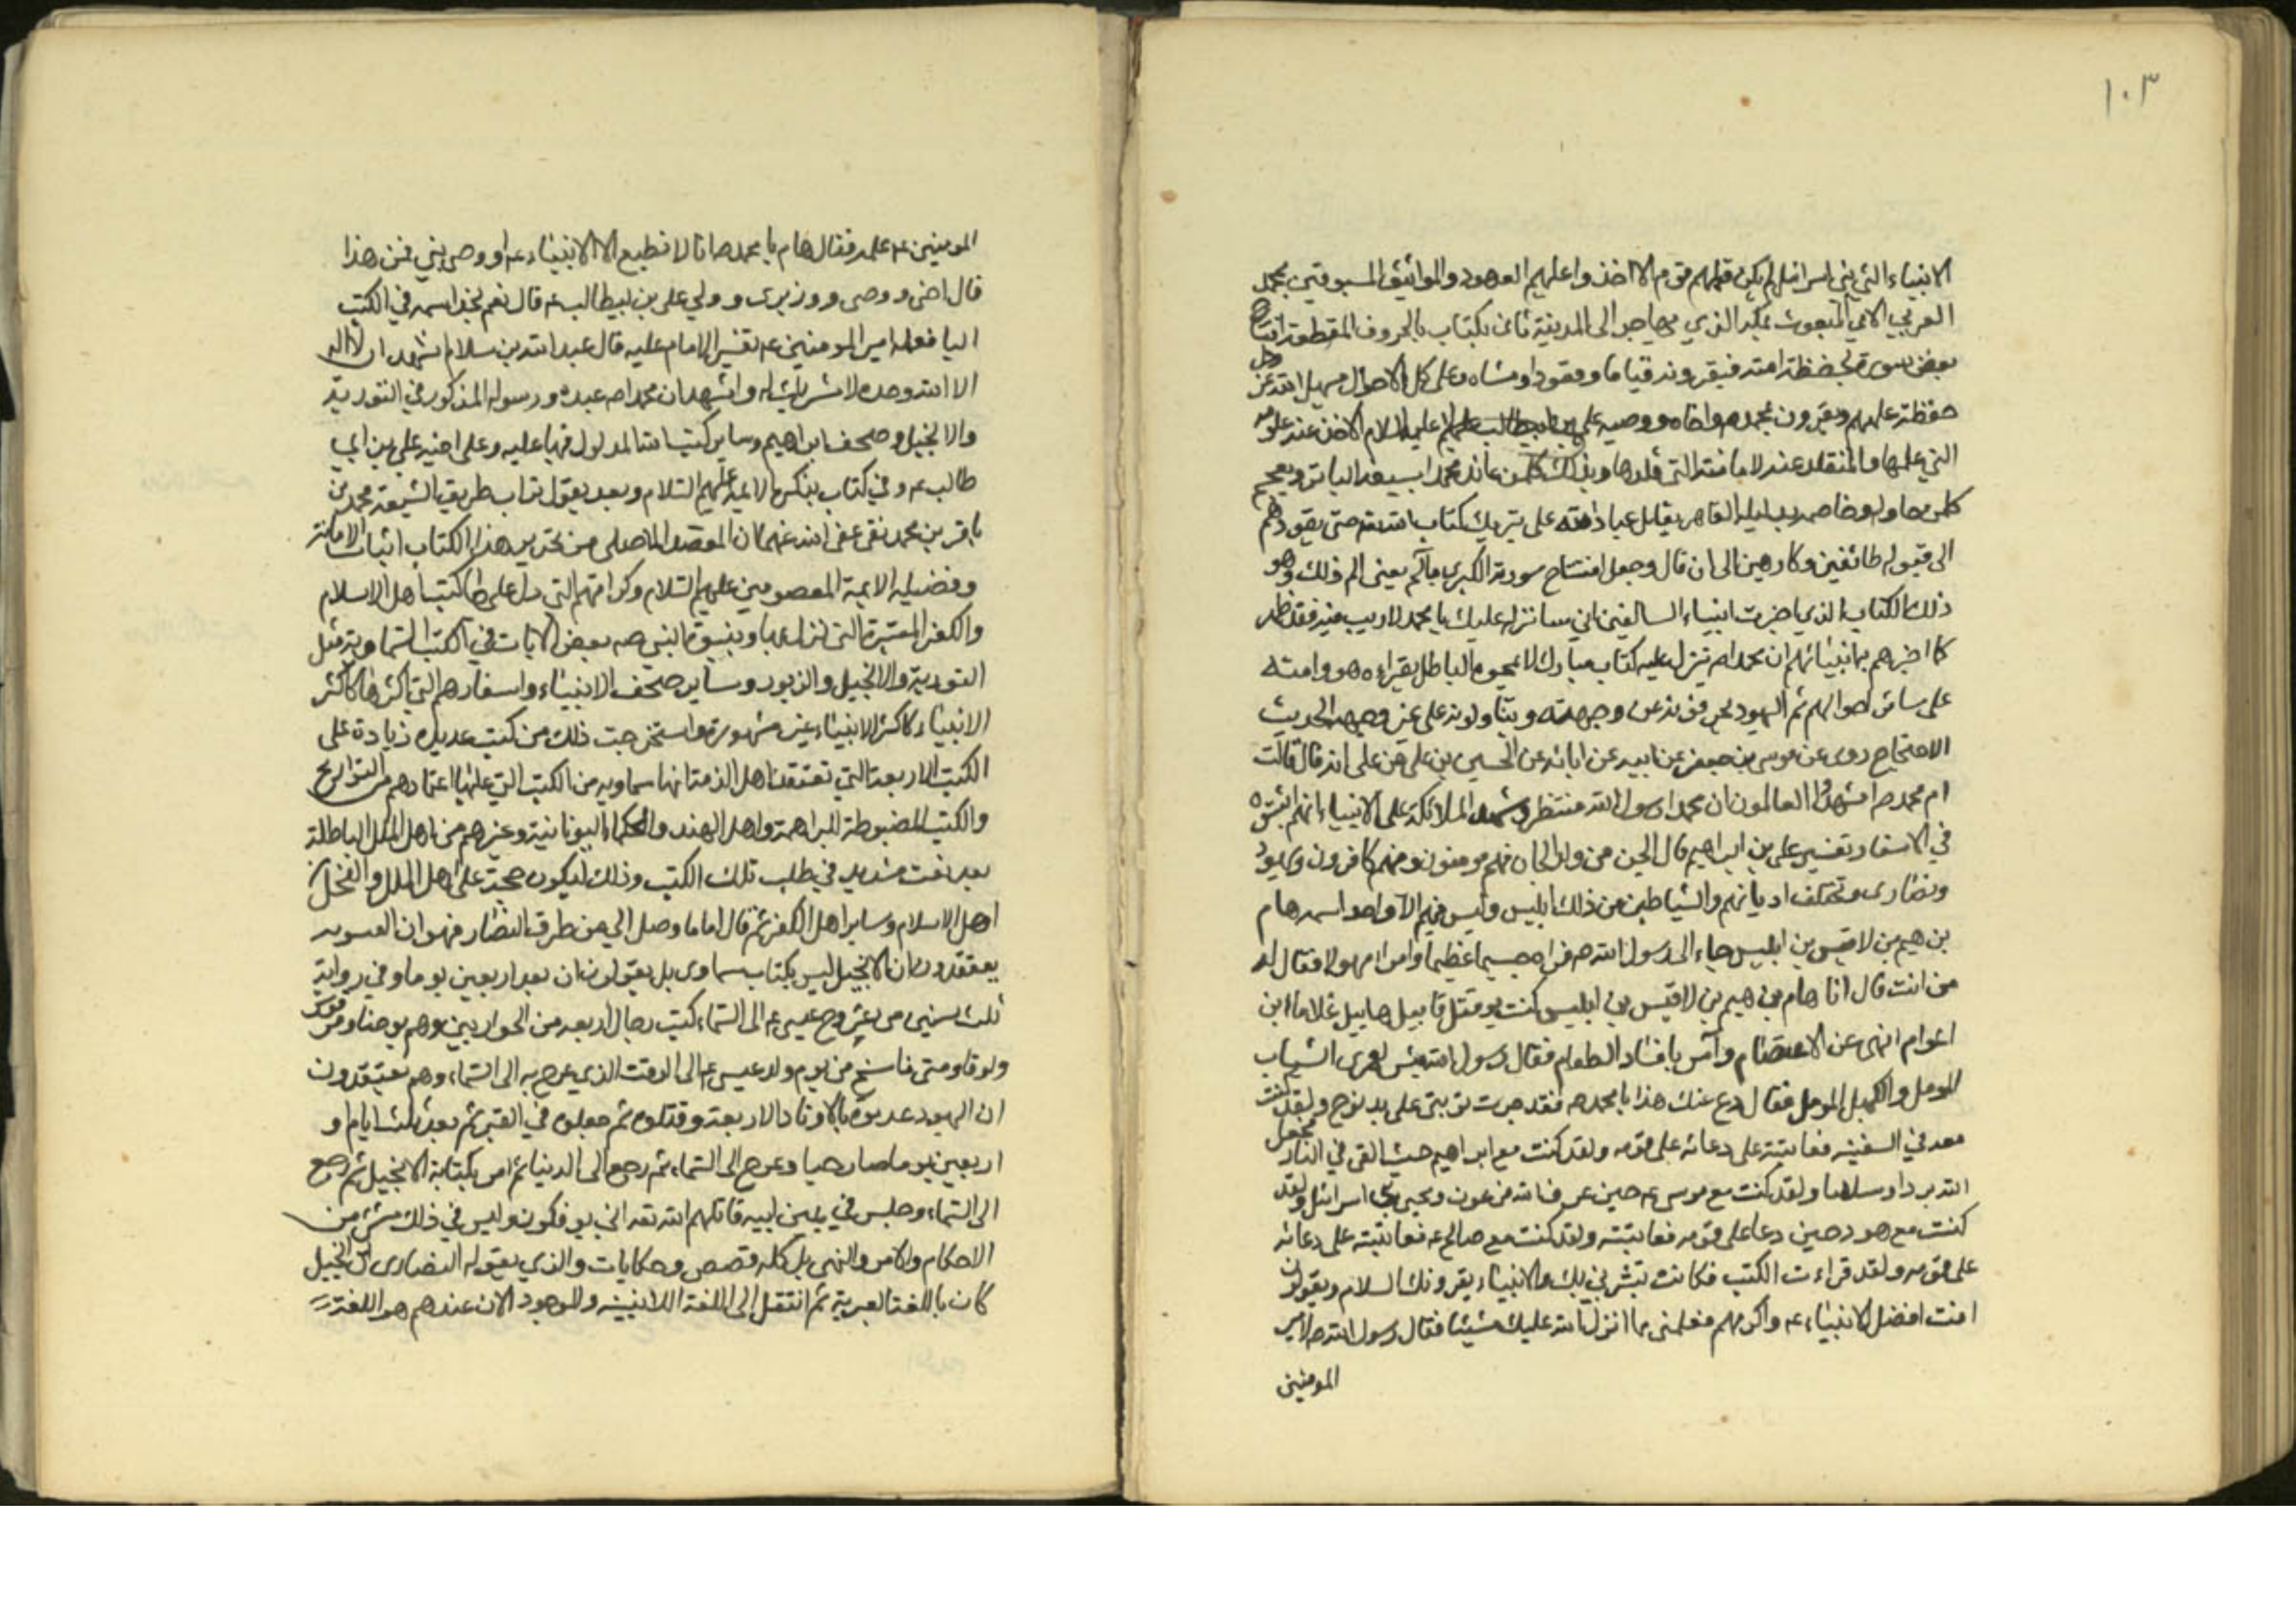 ١٠٣
الانبياء التي بني اسرائيل لم يكن قبلهم قوم الا اخذوا عليهم العهود والمواثيق المسبوقين بمحمد
العربي الامي المبعوث بمكة الذي يهاجر الى المدينة ثاني بكتاب بالحروف المقطعة افتتاح
بعض سورة يحفظه امته فيقرونه قياما وقعودا ومشاه وعلى كل الاحوال يسهل الله عز وجل
حفظه عليهم ويقرون بمحمد ص واخاه ووصيه علي بن ابيطالب عليهم السلام الاخذ عنه علومه
التي علمها والمتقلد عنه لامانته التي قلدها ويذلل كلمن عاند محمدا بسيفه الباتر ويفحم
كلمن حاوله وخاصمه بدليله القاهر يقاتل عباد الله على تنزيل كتاب الله تعه حتى يقودهم
الى قبوله طائعين وكارهين الى ان قال وجعل افتتاح سورته الكبرى بالم يعني الم ذلك وهو
ذلك الكتاب الذي اخبرت انبياء السالفين اني سانزله عليك يا محمد لا ريب فيه فقد ظهر
كما اخبرهم به انبيائهم ان محمدا ص ينزل عليه كتاب مبارك لا يمحوه الباطل يقراءه هو وامته
على سائر احوالهم ثم اليهود يحرفونه عن وجهته ويتاولونه على غير وجهه الحديث
الاحتجاج روى عن موسى بن جعفر عن ابيه عن ابائه عن الحسين بن علي عن علي انه قال قالت
ام محمد ص اشهدوا العالمون ان محمدا رسول الله منتظر وشهد الملائكة على الانبياء انهم اثبتوه
في الاسفار تفسير علي بن ابراهيم قال الجن من ولد الجان فهم مومنون ومنهم كافرون ويهود
ونصارى وتختلف اديانهم والشياطين من ذلك ابليس وليس فيهم الا واحد اسمه هام
بن هيم بن لاقيس بن ابليس جاء الى رسول الله ص فراه جسيما عظيما وامرا مهولا فقال له
من انت قال انا هام بن هيم بن لاقيس بن ابليس كنت يوم قتل قابيل هابيل غلاما ابن
اعوام انهى عن الاعتصام وآمر بافساد الطعام فقال رسول الله بئس لعمري الشباب
المومل والكهل المومل فقال دع عنك هذا يا محمد ص فقد جرت توبتي على يد نوح ولقد كنت
معه في السفينه فعاتبته على دعائه على قومه ولقد كنت مع ابراهيم حيث القى في النار فجعل
الله بردا وسلاما ولقد كنت مع موسى ع حين غرق الله فرعون ونجى بني اسرائل ولقد
كنت مع هود حين دعا على قومه فعاتبته ولقد كنت مع صالح ع فعاتبته على دعائه
على قومه ولقد قراءت الكتب فكانت تبشرني بك والانبياء يقرونك السلام ويقولون
انت افضل الانبياء ع واكرمهم فعلمني مما انزل الله عليك شيئا فقال رسول الله ص لامير
المومنين
المومنين ع علمه فقال هام يا محمد ص انا لا نطيع الا الانبياء ع او وصى نبي فمن هذا
قال اخى ووصى ووزيرى وولي علي بن ابيطالب ع قال نعم نجد اسمه في الكتب
اليا فعلمه امير المومنين ع تفسير الامام عليه قال عبد الله بن سلام نشهد ان لا اله
الا الله وحده لا شريك له واشهد ان محمدا ص عبده ورسوله المذكور في التورية
والانجيل وصحف ابراهيم وساير كتب الله المدلول فيها عليه وعلى اخيه علي بن ابي
طالب ع وفي كتاب بذكر الايمة عليهم السلام وبعد يقول تراب طريق الشيعة محمد بن
باقر بن محمد تقي عفى الله عنهما ان المقصد الاصلى من تحرير هذا الكتاب اثبات الامامة
وفضيلة الايمة المعصومين عليهم السلام وكراماتهم التي دل على كتب اهل الاسلام
والكفر المعتبرة التي نزل بها وبنبوة النبي صه بعض الايات في الكتب السماوية مثل
التورية والانجيل والزبور وساير صحف الانبياء واسفارهم التي اكثرها كاكثر
الانبياء كاكثر الانبياء غير مشهورة واستخرجت ذلك من كتب عديده زيادة على
الكتب الاربعة التي تعتقد اهل الذمة انها سماويه من الكتب التي عليها اعتمادهم من التواريخ
والكتب المضبوطة للبراهمة واهل الهند والحكماء اليونانية وغيرهم من اهل الملل الباطلة
بعد تعب شديد في طلب تلك الكتب وذلك ليكون حجة على اهل الملل والنحل من
اهل الاسلام وساير اهل الكفر ثم قال اما ما وصل الي من طرق النصارى فهو ان العسويه
يعتقدون ان الانجيل ليس بكتاب سماوى بل يقولون ان بعد اربعين يوما وفي رواية
ثلث سنين من عروج عيسى ع الى السماء كتب رجال اربعه من الحواريين وهم يوحنا ومرقس
ولوقا ومتى ناسخ من يوم ولد عيسى ع الى الوقت الذي عرج به الى السماء وهم يعتقدون
ان اليهود عذبوه بالاوتاد الاربعة وقتلوه ثم جعلوه في القبر ثم بعد ثلث ايام و
اربعين يوما صار حيا وعرج الى السماء ثم رجع الى الدنيا ثم امر بكتابة الانجيل ثم رجع
الى السماء وجلس في يمين ابيه قاتلهم الله تعه انى يوفكون وليس في ذلك شئ من
الاحكام والامر والنهى بل كله قصص وحكايات والذي يقوله النصارى ان انجيل
كان باللغة العبرية ثم انتقل الى اللغة اللاتينيه والموجود الان عندهم هو اللغة